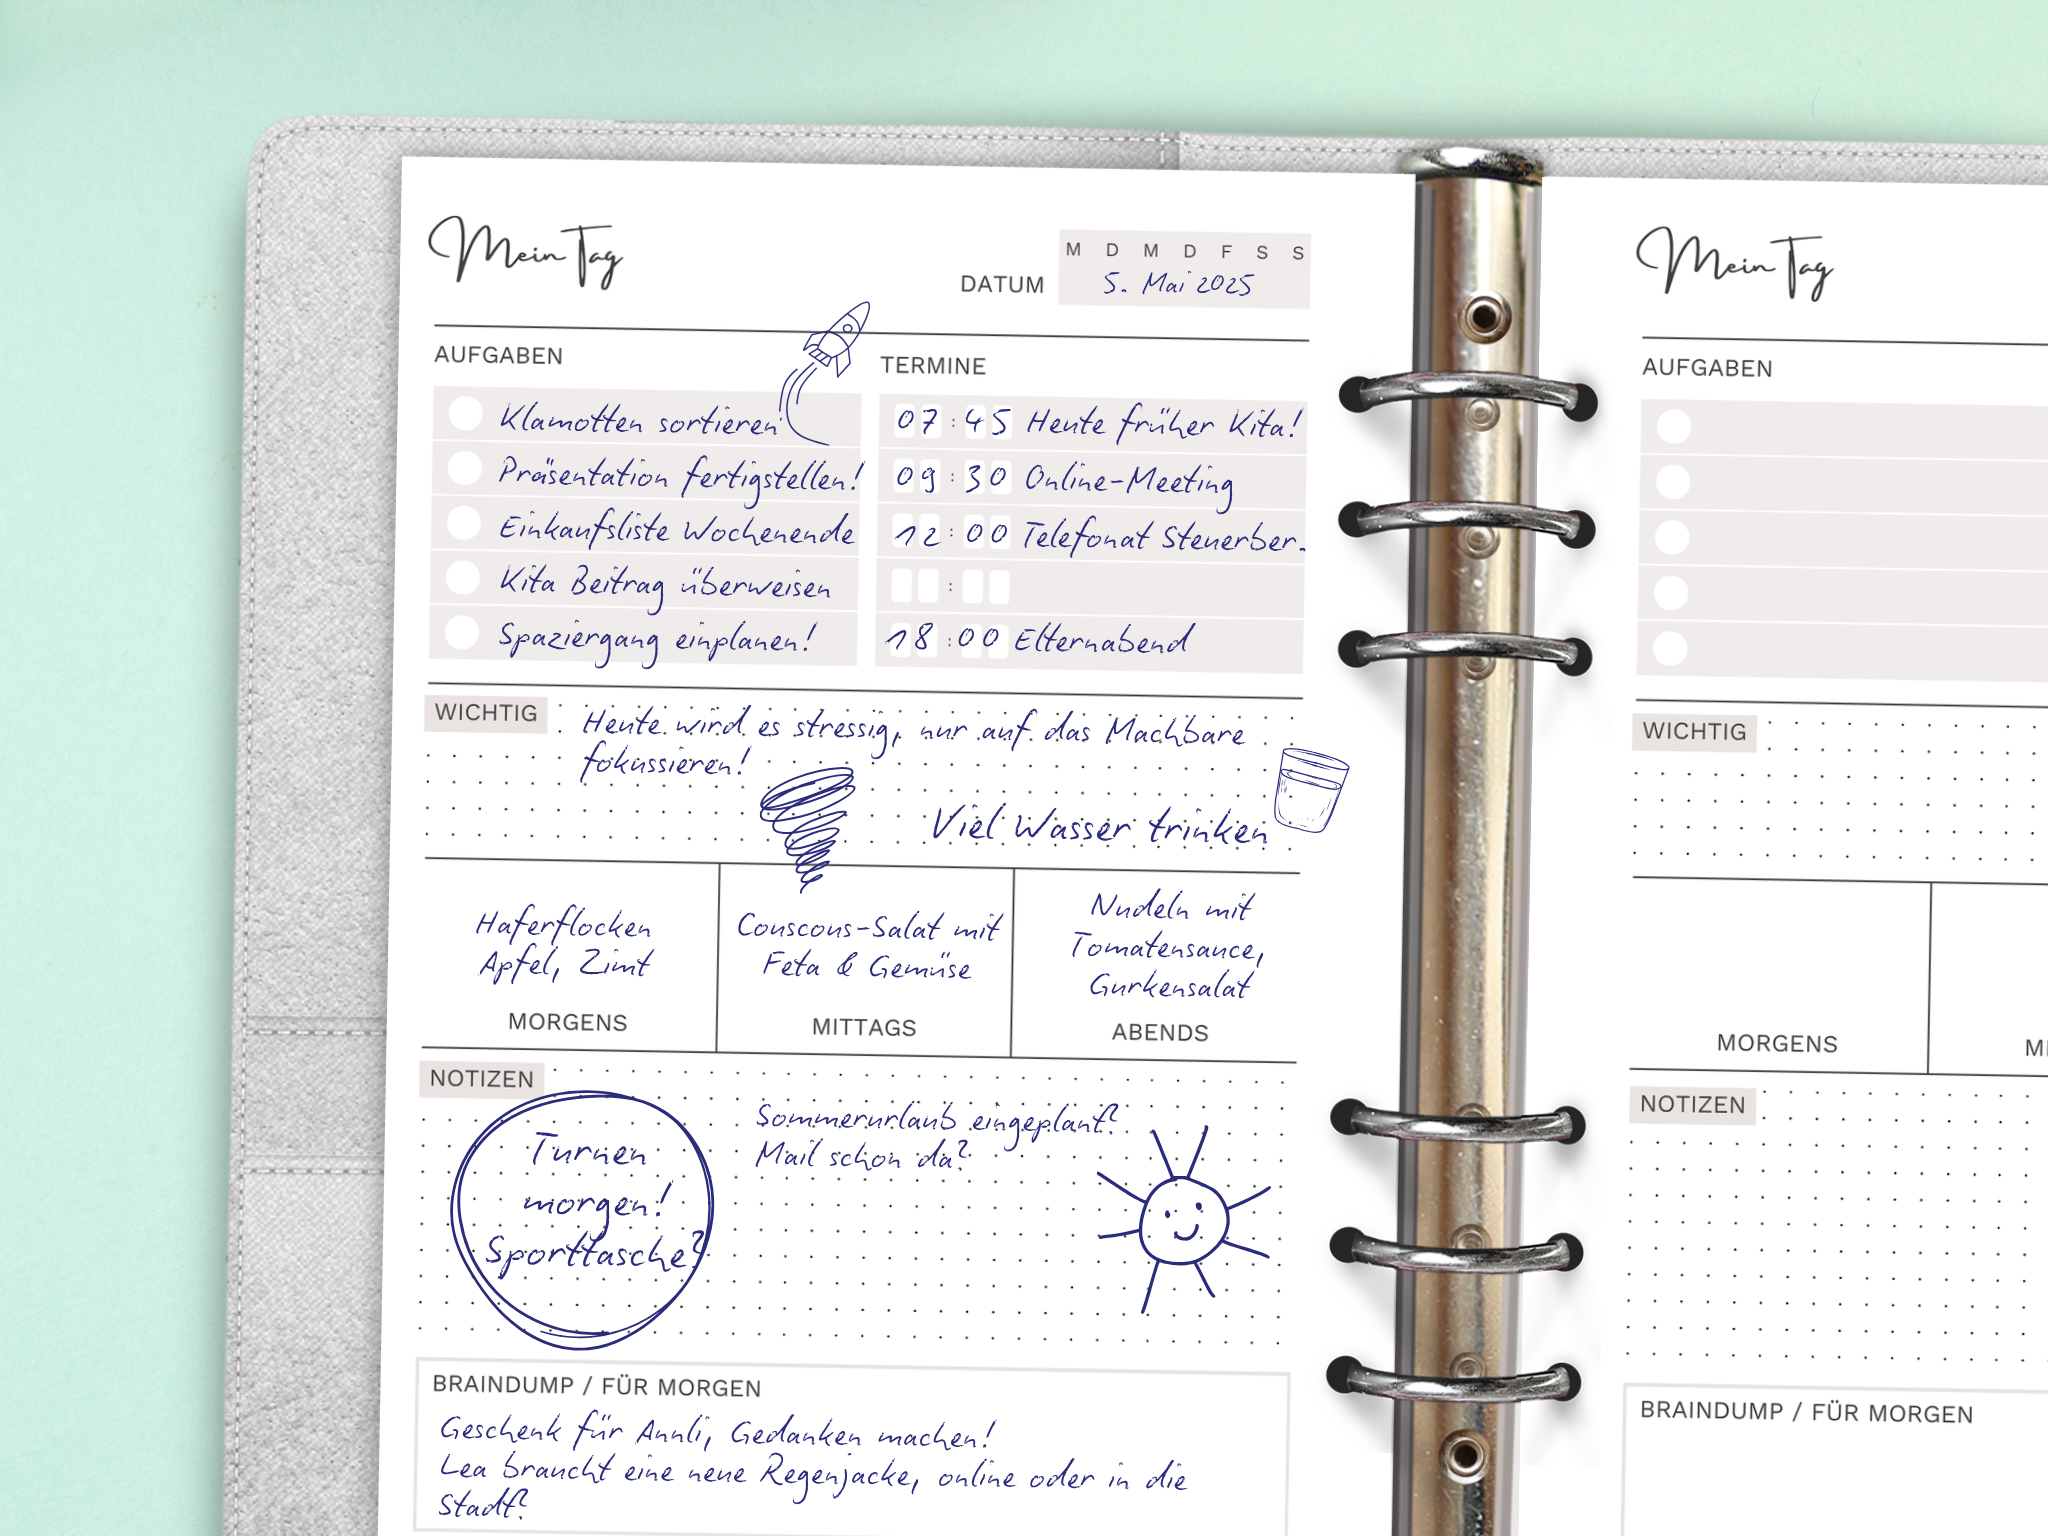 Mein Tag
M D M D F S S
DATUM 5. Mai 2025
AUFGABEN
Klamotten sortieren
Präsentation fertigstellen!
Einkaufsliste Wochenende
Kita Beitrag überweisen
Spaziergang einplanen!
TERMINE
07:45 Heute früher Kita!
09:30 Online-Meeting
12:00 Telefonat Steuerber.
:
18:00 Elternabend
WICHTIG
Heute wird es stressig, nur auf das Machbare
fokussieren!
Viel Wasser trinken
Haferflocken
Apfel, Zimt
MORGENS
Couscous-Salat mit
Feta & Gemüse
MITTAGS
Nudeln mit
Tomatensauce,
Gurkensalat
ABENDS
NOTIZEN
Turnen
morgen!
Sporttasche?
Sommerurlaub eingeplant?
Mail schon da?
BRAINDUMP / FÜR MORGEN
Geschenk für Annli, Gedanken machen!
Lea braucht eine neue Regenjacke, online oder in die
Stadt?
Mein Tag
AUFGABEN
WICHTIG
MORGENS
MI
NOTIZEN
BRAINDUMP / FÜR MORGEN